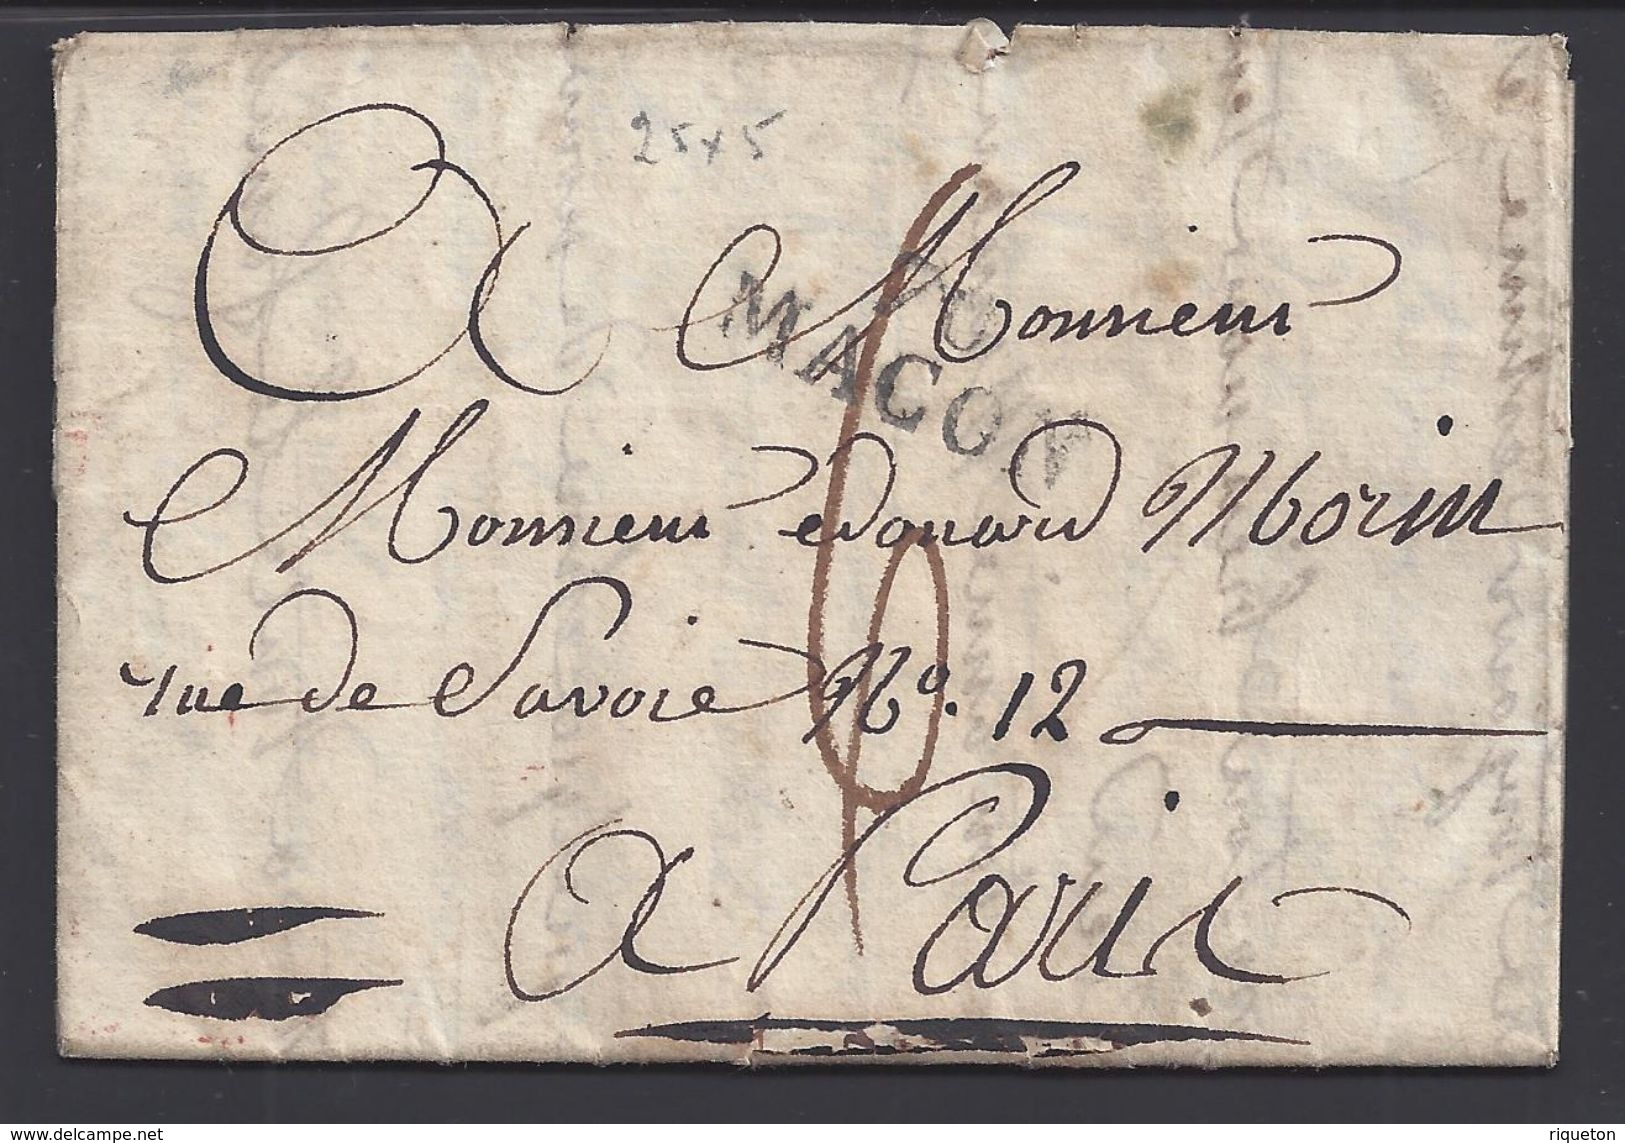 25x5
A Monsieur
70
MACON
Monsieur edouard Morin
rue de Savoie No. 12
a Paris
www.delcampe.net
riqueton